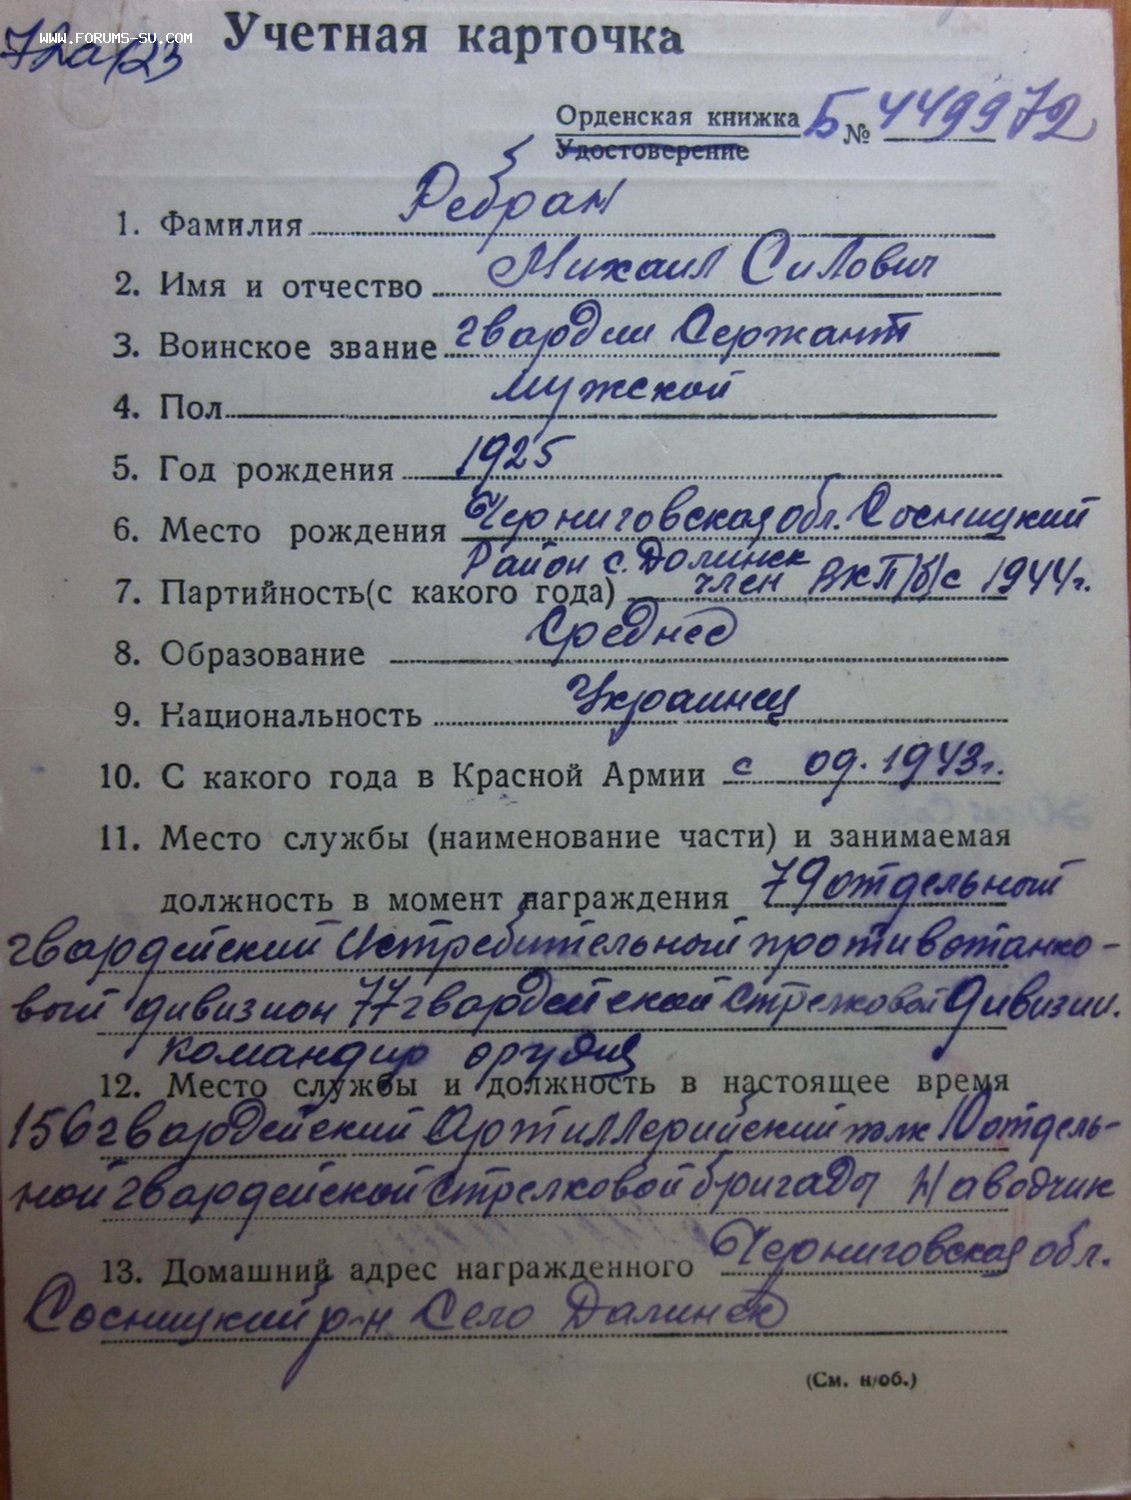 www.forums-su.com
Учетная карточка
Орденская книжка Б № 449972
Удостоверение
1. Фамилия Ребран
2. Имя и отчество Михаил Силович
3. Воинское звание гвардии Сержант
4. Пол мужской
5. Год рождения 1925
6. Место рождения Черниговская обл. Сосницкий
Район с. Долинск
7. Партийность(с какого года) член ВКП/б/с 1944г.
8. Образование Среднее
9. Национальность Украинец
10. С какого года в Красной Армии с 09.1943г.
11. Место службы (наименование части) и занимаемая
должность в момент награждения 79 отдельный
гвардейский истребительный противотанко-
вый дивизион 77 гвардейской стрелковой дивизии.
командир орудия
12. Место службы и должность в настоящее время
156 гвардейский Артиллерийский полк 10 отдель-
ной гвардейской стрелковой бригады Наводчик
13. Домашний адрес награжденного Черниговская обл.
Сосницкий р-н Село Далинск
(См. н/об.)